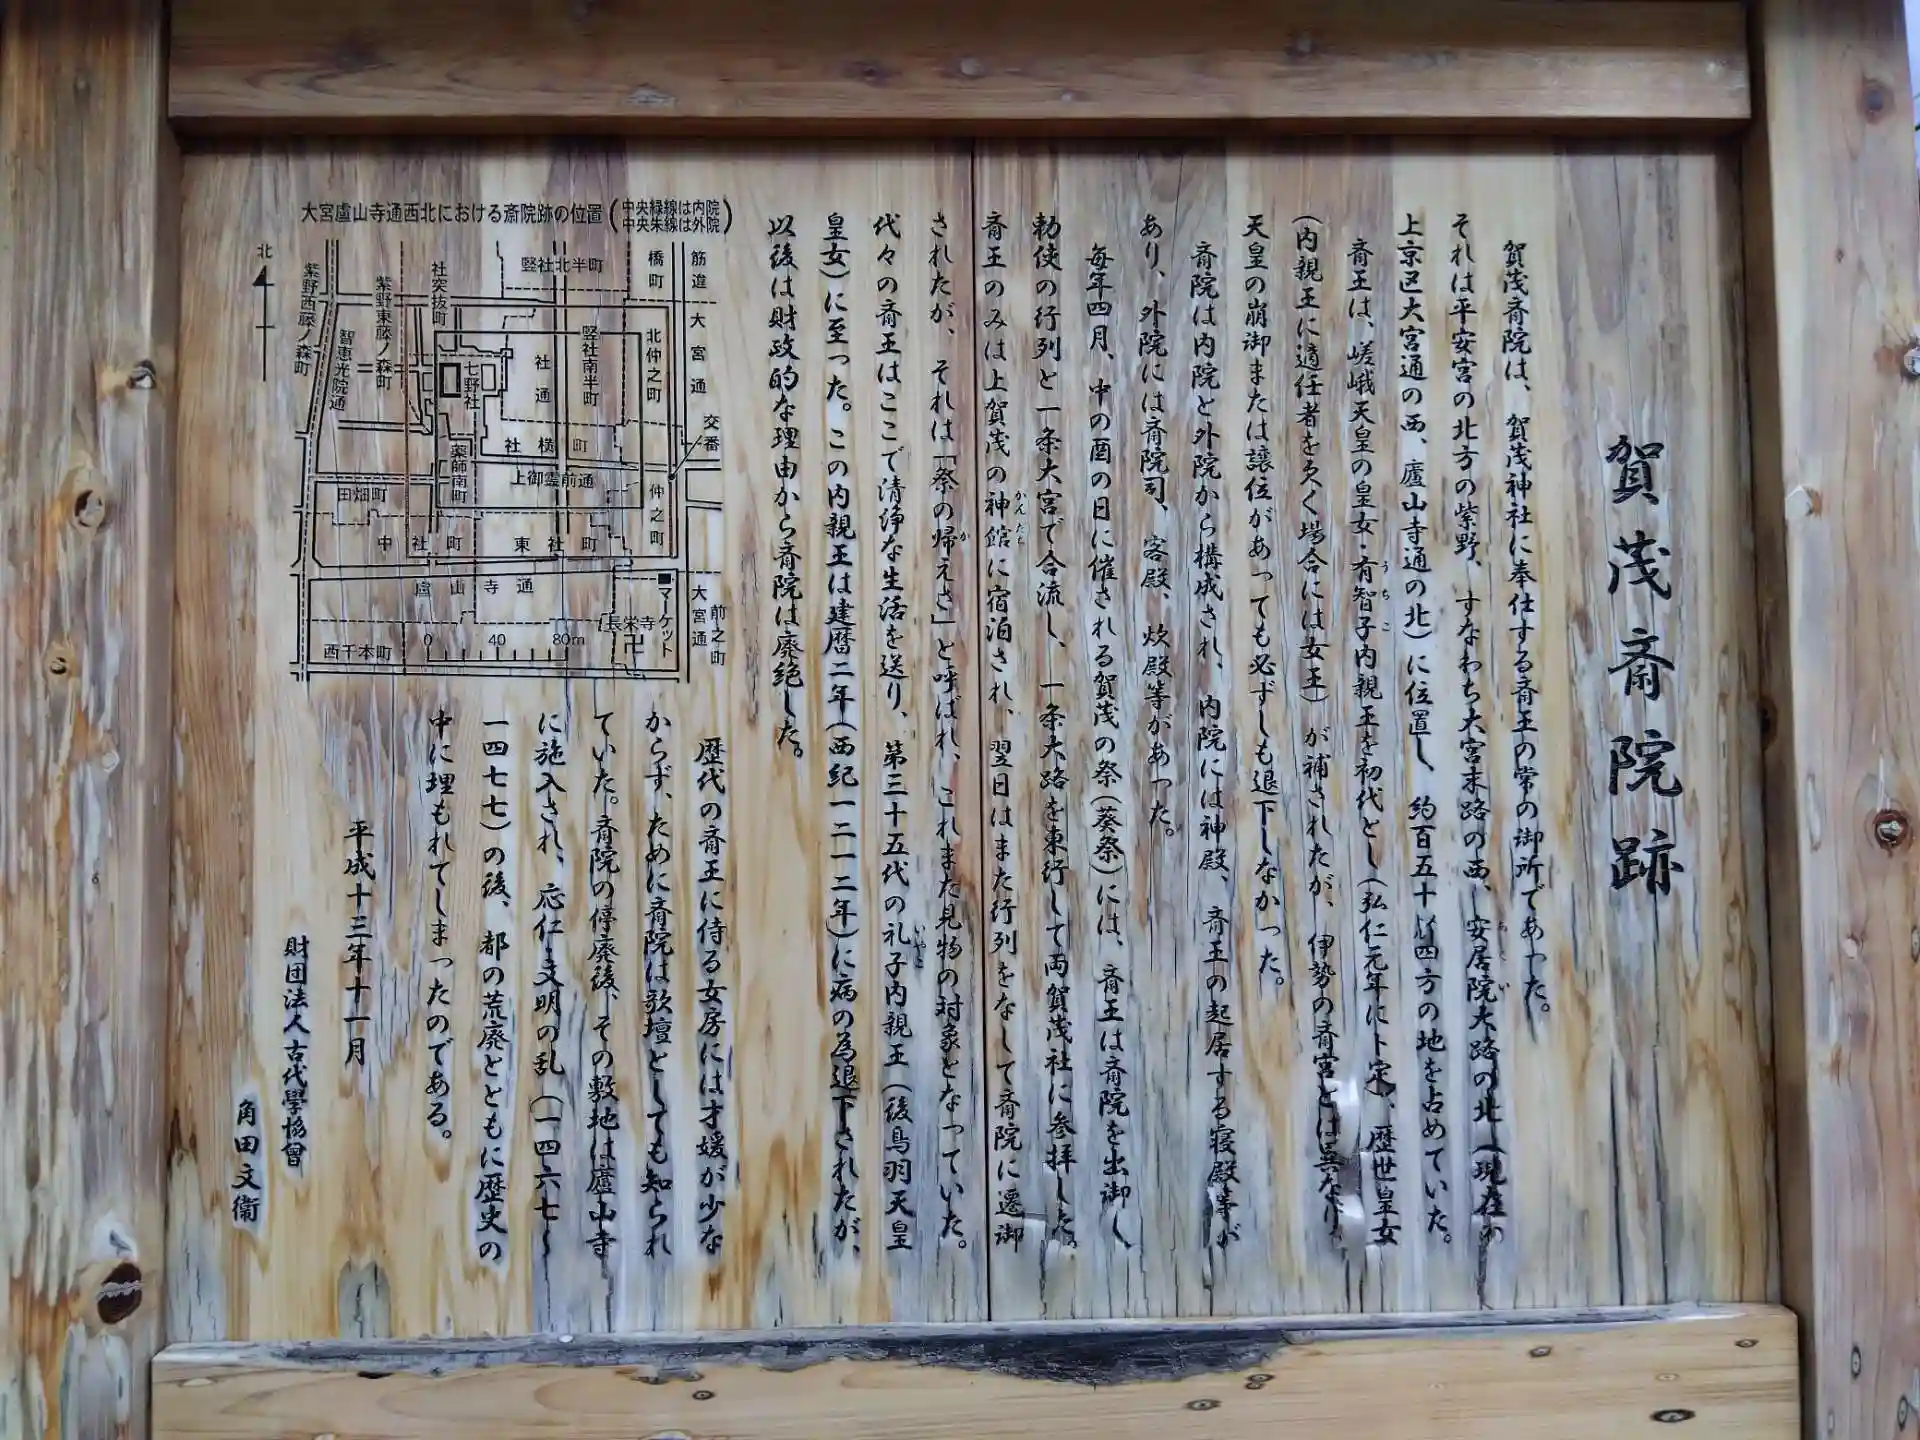 賀茂斎院跡
賀茂斎院は、賀茂神社に奉仕する斎王の常の御所であった。
それは平安宮の北方の紫野、すなわち大宮末路の西、安居院大路の北(現在の
上京区大宮通の西、廬山寺通の北)に位置し、約百五十㍍四方の地を占めていた。
斎王は、嵯峨天皇の皇女・有智子内親王を初代とし(弘仁元年に卜定)、歴世皇女
うちこ
(内親王に適任者を欠く場合には女王)が補されたが、伊勢の斎宮とは異なり、
天皇の崩御または譲位があっても必ずしも退下しなかった。
斎院は内院と外院から構成され、内院には神殿、斎王の起居する寝殿等が
あり、外院には斎院司、客殿、炊殿等があった。
毎年四月、中の酉の日に催される賀茂の祭(葵祭)には、斎王は斎院を出御し、
勅使の行列と一条大宮で合流し、一条大路を東行して両賀茂社に参拝した。
斎王のみは上賀茂の神館に宿泊され、翌日はまた行列をなして斎院に還御
かんだち
されたが、それは「祭の帰えさ」と呼ばれ、これまた見物の対象となっていた。
か
代々の斎王はここで清浄な生活を送り、第三十五代の礼子内親王(後鳥羽天皇
いやこ
皇女)に至った。この内親王は建暦二年(西紀一二一二年)に病の為退下されたが、
以後は財政的な理由から斎院は廃絶した。
歴代の斎王に侍る女房には才媛が少な
からず、ために斎院は歌壇としても知られ
ていた。斎院の停廃後、その敷地は廬山寺
に施入され、応仁・文明の乱(一四六七〜
一四七七)の後、都の荒廃とともに歴史の
中に埋もれてしまったのである。
平成十三年十一月
財団法人古代學協會
角田文衞
大宮盧山寺通西北における斎院跡の位置(中央緑線は内院
中央朱線は外院)
北
筋違
橋町
竪社北半町
社突抜町
紫野東藤ノ森町
紫野西藤ノ森町
智恵光院通
大宮通
北仲之町
竪社南半町
社通
七野社
交番
社横町
薬師南町
上御霊前通
田畑町
仲之町
中社町
東社町
盧山寺通
マーケット
大宮通
前之町
長栄寺
卍
西千本町
0 40 80m